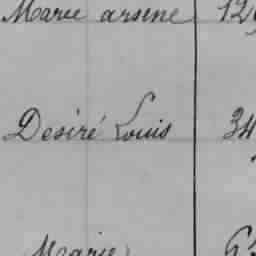 Marie arsene 12
Desiré Louis 34
Marie